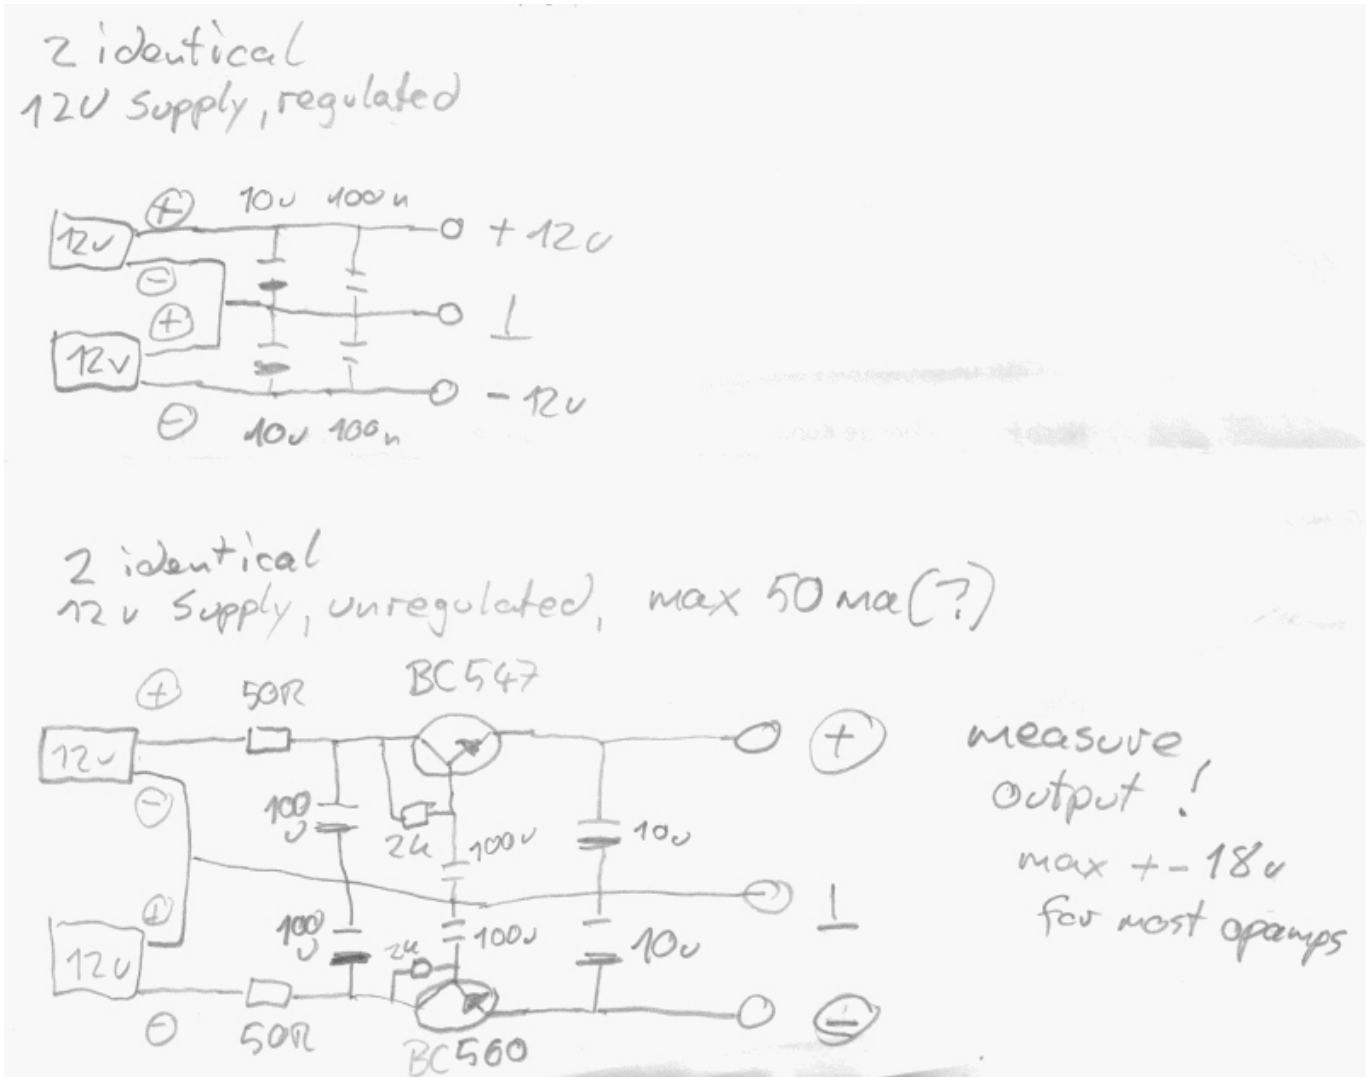 2 identical
12V Supply, regulated
+ 10u 100n
12v + 12v
-
+ ⊥
12v
- - 12v
10u 100n
2 identical
12v Supply, unregulated, max 50ma(?)
+ 50R BC547
12v +
measure
output !
- 100u 2k 100u 10u
max +- 18v
+ ⊥
for most opamps
100u 2k 100u 10u
12v
- 50R BC560 -